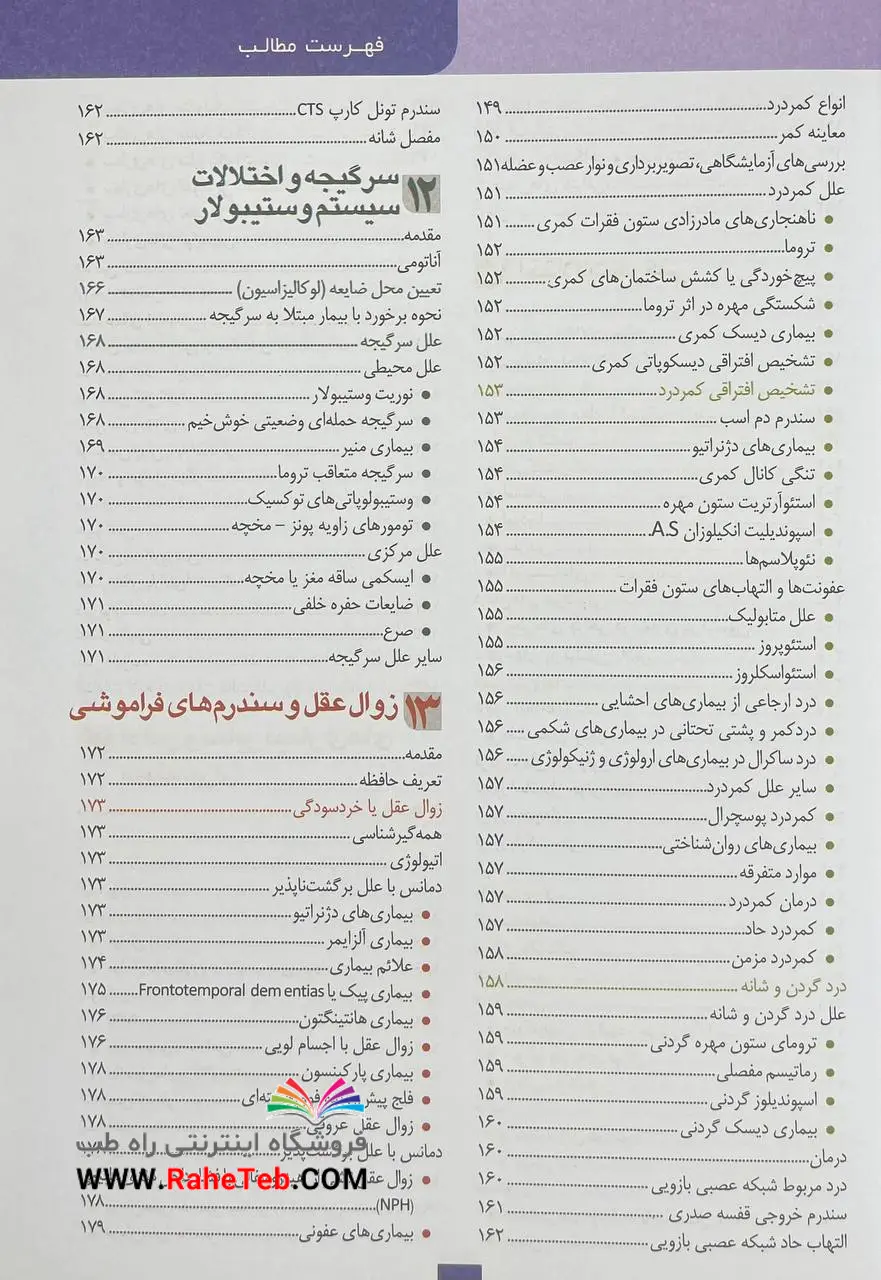 فهرست مطالب
انواع کمردرد ۱۴۹
معاینه کمر ۱۵۰
بررسی‌های آزمایشگاهی، تصویربرداری و نوار عصب و عضله ۱۵۱
علل کمردرد ۱۵۱
• ناهنجاری‌های مادرزادی ستون فقرات کمری ۱۵۱
• تروما ۱۵۲
• پیچ‌خوردگی یا کشش ساختمان‌های کمری ۱۵۲
• شکستگی مهره در اثر تروما ۱۵۲
• بیماری دیسک کمری ۱۵۲
• تشخیص افتراقی دیسکوپاتی کمری ۱۵۲
• تشخیص افتراقی کمردرد ۱۵۳
• سندرم دم اسب ۱۵۳
• بیماری‌های دژنراتیو ۱۵۴
• تنگی کانال کمری ۱۵۴
• استئوآرتریت ستون مهره ۱۵۴
• اسپوندیلیت انکیلوزان A.S ۱۵۴
• نئوپلاسم‌ها ۱۵۵
عفونت‌ها و التهاب‌های ستون فقرات ۱۵۵
• علل متابولیک ۱۵۵
• استئوپروز ۱۵۵
• استئواسکلروز ۱۵۶
• درد ارجاعی از بیماری‌های احشایی ۱۵۶
• دردکمر و پشتی تحتانی در بیماری‌های شکمی ۱۵۶
• درد ساکرال در بیماری‌های ارولوژی و ژنیکولوژی ۱۵۶
• سایر علل کمردرد ۱۵۷
• کمردرد پوسچرال ۱۵۷
• بیماری‌های روان‌شناختی ۱۵۷
• موارد متفرقه ۱۵۷
• درمان کمردرد ۱۵۷
• کمردرد حاد ۱۵۷
• کمردرد مزمن ۱۵۸
درد گردن و شانه ۱۵۸
علل درد گردن و شانه ۱۵۹
• ترومای ستون مهره گردنی ۱۵۹
• رماتیسم مفصلی ۱۵۹
• اسپوندیلوز گردنی ۱۵۹
• بیماری دیسک گردنی ۱۶۰
درمان ۱۶۰
درد مربوط شبکه عصبی بازویی ۱۶۰
سندرم خروجی قفسه صدری ۱۶۱
التهاب حاد شبکه عصبی بازویی ۱۶۲
سندرم تونل کارپ CTS ۱۶۲
مفصل شانه ۱۶۲
۱۲ سرگیجه و اختلالات
سیستم وستیبولار
مقدمه ۱۶۳
آناتومی ۱۶۳
تعیین محل ضایعه (لوکالیزاسیون) ۱۶۶
نحوه برخورد با بیمار مبتلا به سرگیجه ۱۶۷
علل سرگیجه ۱۶۸
علل محیطی ۱۶۸
• نوریت وستیبولار ۱۶۸
• سرگیجه حمله‌ای وضعیتی خوش‌خیم ۱۶۸
• بیماری منیر ۱۶۹
• سرگیجه متعاقب تروما ۱۷۰
• وستیبولوپاتی‌های توکسیک ۱۷۰
• تومورهای زاویه پونز – مخچه ۱۷۰
علل مرکزی ۱۷۰
• ایسکمی ساقه مغز یا مخچه ۱۷۰
• ضایعات حفره خلفی ۱۷۱
• صرع ۱۷۱
سایر علل سرگیجه ۱۷۱
۱۳ زوال عقل و سندرم‌های فراموشی
مقدمه ۱۷۲
تعریف حافظه ۱۷۲
زوال عقل یا خردسودگی ۱۷۳
همه‌گیرشناسی ۱۷۳
اتیولوژی ۱۷۳
دمانس با علل برگشت‌ناپذیر ۱۷۳
• بیماری‌های دژنراتیو ۱۷۳
• بیماری آلزایمر ۱۷۳
• علائم بیماری ۱۷۴
• بیماری پیک یا Frontotemporal dementias ۱۷۵
• بیماری هانتینگتون ۱۷۶
• زوال عقل با اجسام لویی ۱۷۶
• بیماری پارکینسون ۱۷۸
• فلج ۱۷۸
• زوال عقل عروقی ۱۷۸
دمانس با علل
• زوال عقل
(NPH) ۱۷۸
• بیماری‌های عفونی ۱۷۹
فروشگاه اینترنتی راه طب
WWW.RaheTeb.COM